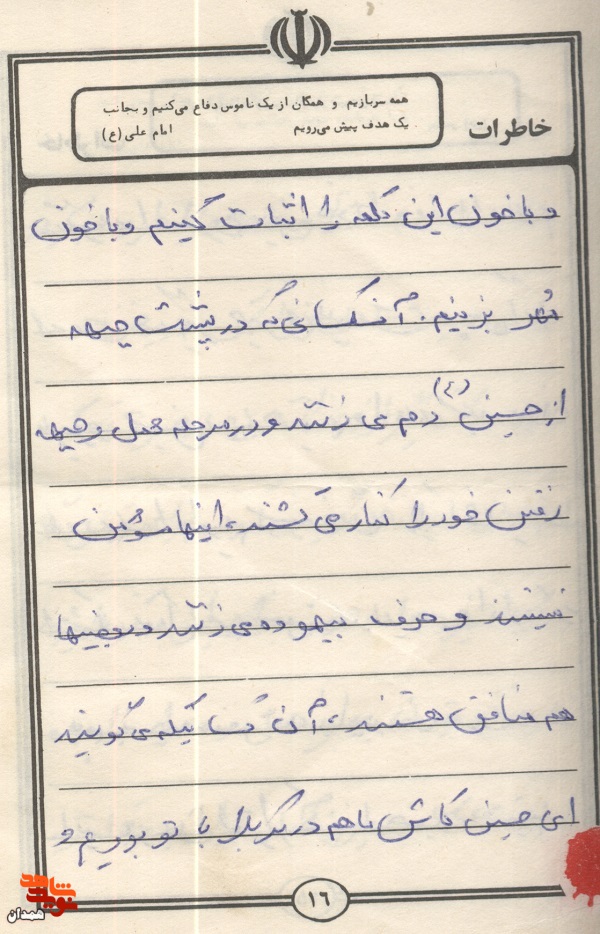 همه سربازیم و همگان از یک ناموس دفاع می‌کنیم و بجانب
یک هدف پیش می‌رویم امام علی (ع)
خاطرات
و با خون این کلمه را اثبات کنیم و با خون
مُهر بزنیم. آنکسانی که در پشت جبهه
از حسین (ع) دم می زنند و در مرحله عمل و جبهه
رفتن خود را کنار می کشند، اینها مؤمن
نیستند و حرف بیهوده می زنند و بعضیها
هم منافق هستند، آن کسانیکه می گویند
ای حسین کاش ما هم در کربلا با تو بودیم و
۱۶
نوید شاهد
همدان